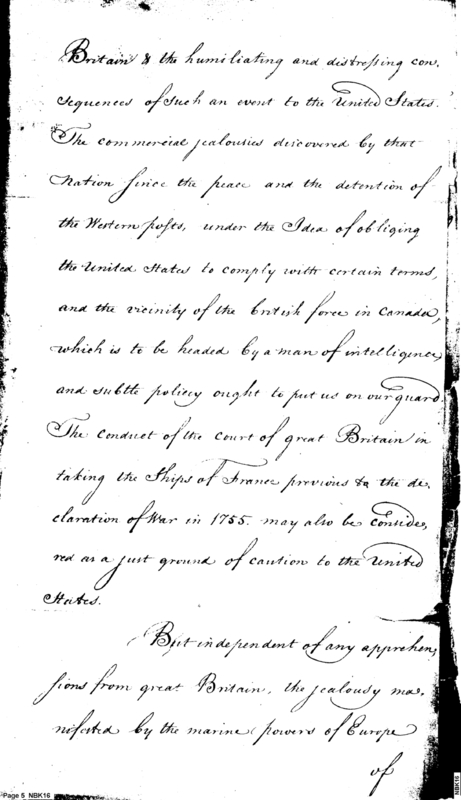 Britain & the humiliating and distressing con,
sequences of such an event to the United States.
The commercial jealousies discovered by that
Nation since the peace and the detention of
the Western posts, under the Idea of obliging
the United States to comply with certain terms,
and the vicinity of the british force in Canada,
which is to be headed by a man of intelligence
and subtle policy ought to put us on our guard
The conduct of the court of great Britain in
taking the Ships of France previous to the de,
claration of War in 1755. may also be conside,
red as a just ground of caution to the United
States.
But independent of any apprehen,
sions from great Britain, the jealousy ma,
nifested by the marine powers of Europe
of
Page 5 NBK16
NBK16